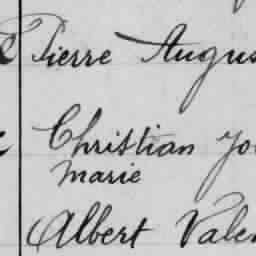 Pierre Augus
Christian Jo
Marie
Albert Valen